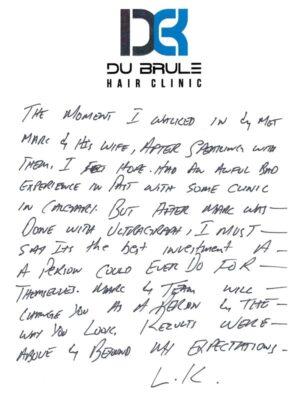 DU BRULE
HAIR CLINIC
THE MOMENT I WALKED IN & MET
MARC & HIS WIFE, AFTER SPEAKING WITH
THEM, I FELT HOPE. HAD AN AWFUL BAD
EXPERIENCE IN PAST WITH SOME CLINIC
IN CALGARY. BUT AFTER MARC WAS —
DONE WITH ULTRAGRAPH, I MUST —
SAY ITS the best investment A —
A PERSON COULD EVER DO FOR —
THEMSELVES. MARC & TEAM WILL —
CHANGE YOU AS A PERSON & THE —
WAY YOU LOOK. RESULTS WERE —
ABOVE & BEYOND MY EXPECTATIONS —
L.K.